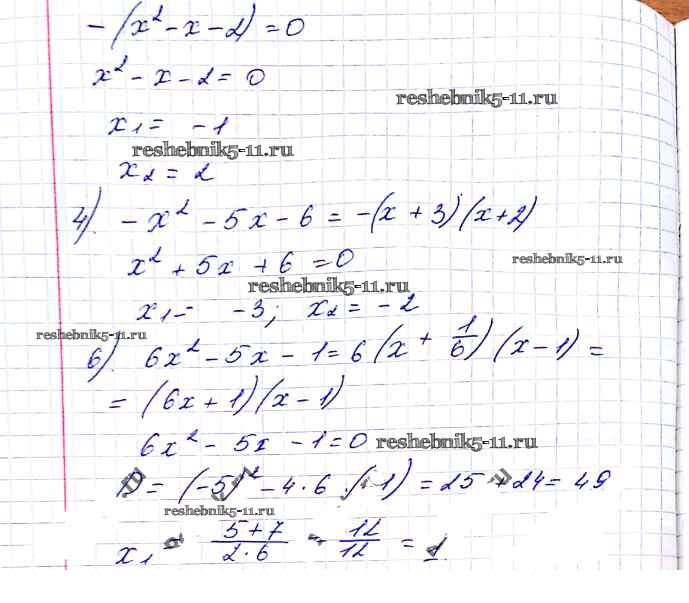 -(x² - x - 2) = 0
x² - x - 2 = 0
reshebnik5-11.ru
x₁ = -1
reshebnik5-11.ru
x₂ = 2
4). -x² - 5x - 6 = -(x + 3)(x + 2)
x² + 5x + 6 = 0
reshebnik5-11.ru
reshebnik5-11.ru
x₁ = -3; x₂ = -2
reshebnik5-11.ru
6). 6x² - 5x - 1 = 6(x + 1/6)(x - 1) =
= (6x + 1)(x - 1)
6x² - 5x - 1 = 0
reshebnik5-11.ru
D = (-5)² - 4·6·(-1) = 25 + 24 = 49
reshebnik5-11.ru
x₁ = (5+7)/(2·6) = 12/12 = 1